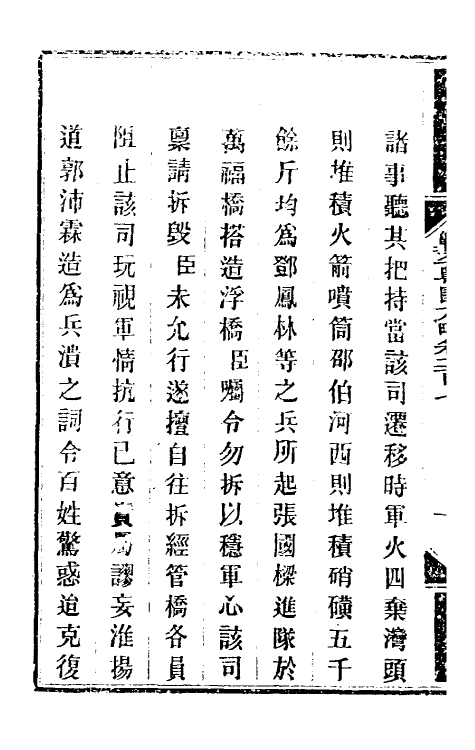 諸事聽其把持當該司遷移時軍火四棄灣頭
則堆積火箭噴筒邵伯河西則堆積硝磺五千
餘斤均爲鄧鳳林等之兵所起張國樑進隊於
萬福橋搭造浮橋臣囑令勿拆以穩軍心該司
稟請拆毀臣未允行遂擅自往拆經管橋各員
阻止該司玩視軍情抗行已意實屬謬妄淮揚
道郭沛霖造爲兵潰之詞令百姓驚惑迨克復